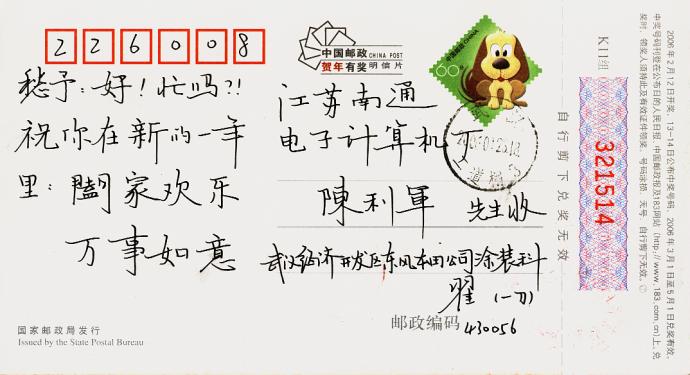 226008
中国邮政 CHINA POST
贺年有奖 明信片
愁予:好!忙吗?!
祝你在新的一年
里:阖家欢乐
万事如意
江苏南通
电子计算机厂
陳利軍 先生收
武汉经济开发区东风本田公司涂装科
翟(一刀)
邮政编码 430056
国家邮政局发行
Issued by the State Postal Bureau
中国邮政 CHINA
自行剪下兑奖无效
K11组
321514
2006年2月12日开奖,13-14日公布中奖号码,2006年3月1日至5月1日兑奖有效。
中奖号码刊登在公布日的人民日报、中国邮政报及183网站(http://www.183.com.cn)上。兑
奖时,领奖人须持此及有效证件领奖。号码涂损、无号、自行剪下无效。